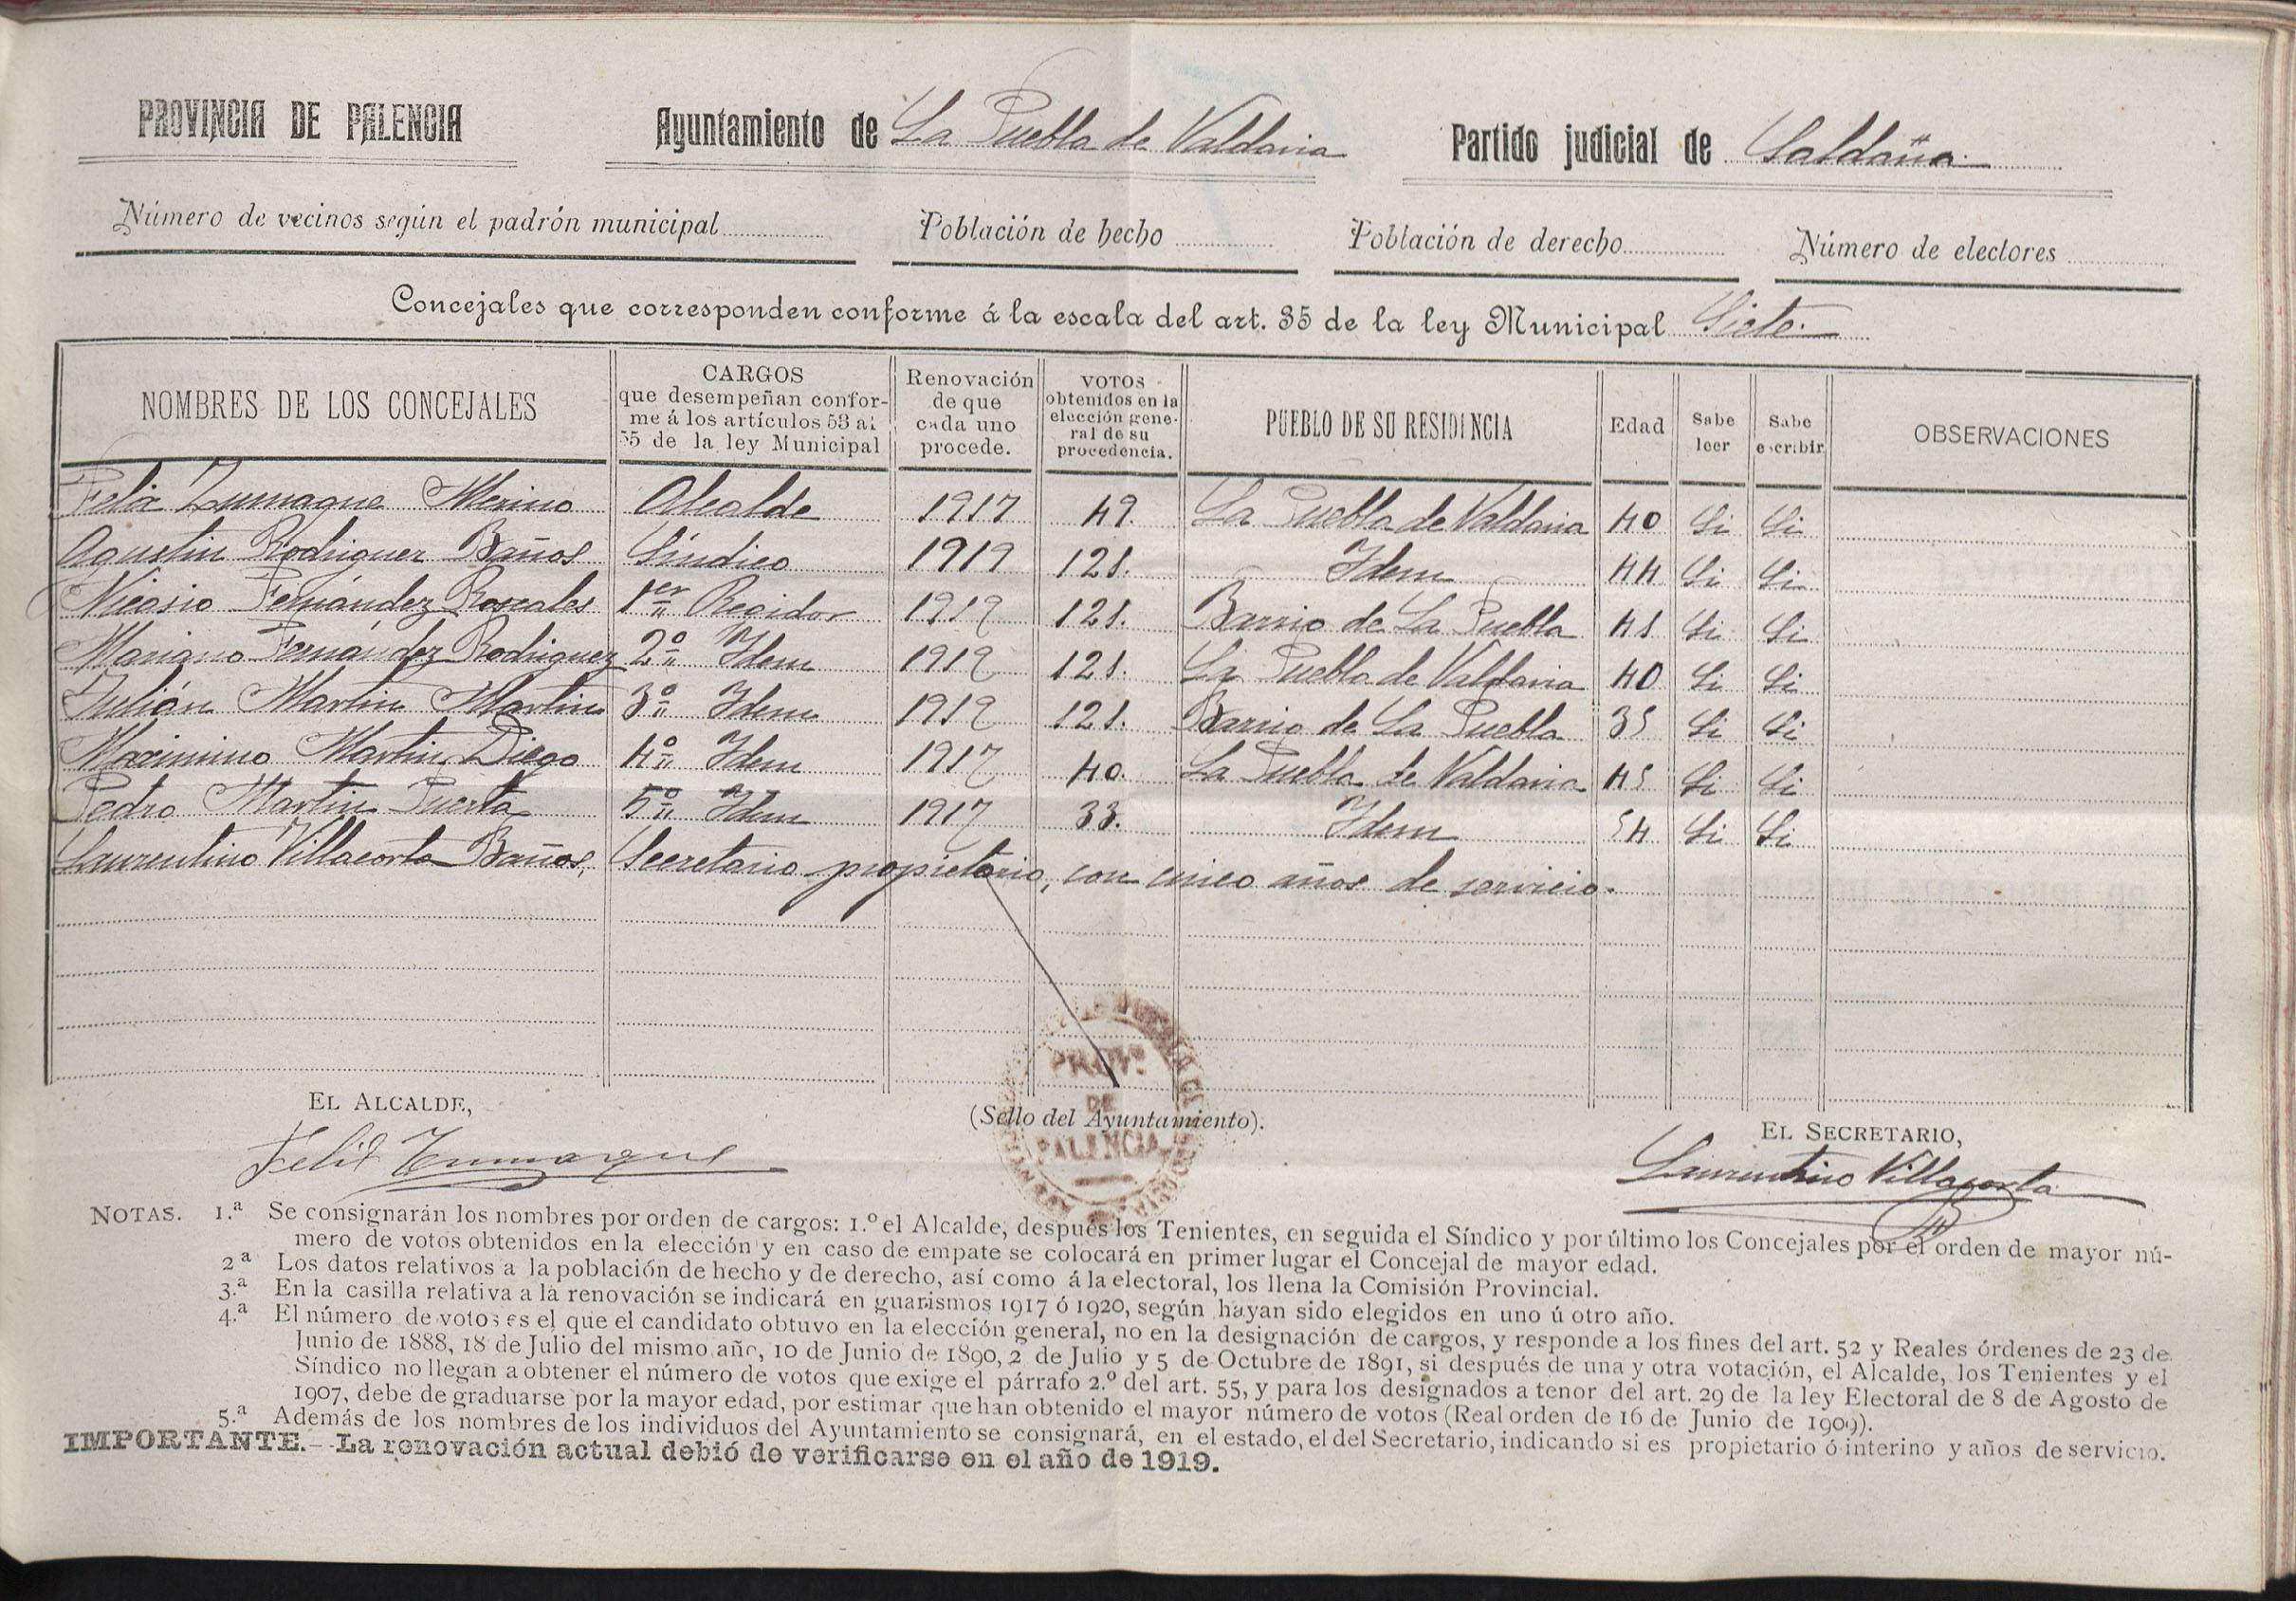 PROVINCIA DE PALENCIA Ayuntamiento de La Puebla de Valdavia Partido judicial de Saldaña.
Número de vecinos según el padrón municipal Población de hecho Población de derecho Número de electores
Concejales que corresponden conforme á la escala del art. 35 de la ley Municipal Siete.
NOMBRES DE LOS CONCEJALES
CARGOS
que desempeñan confor-
me á los artículos 53 al
55 de la ley Municipal
Renovación
de que
cada uno
procede.
VOTOS
obtenidos en la
elección gene-
ral de su
procedencia.
PUEBLO DE SU RESIDENCIA
Edad
Sabe
leer
Sabe
escribir
OBSERVACIONES
Felix Zumaque Merino Alcalde 1917 49. La Puebla de Valdavia 40 Si Si
Agustin Rodriguez Baños Síndico 1919 121. Idem 44 Si Si
Nicasio Fernández Rosales 1er Regidor 1919 121. Barrio de La Puebla 41 Si Si
Mariano Fernández Rodriguez 2º Idem 1919 121. La Puebla de Valdavia 40 Si Si
Julián Martin Martin 3º Idem 1919 121. Barrio de La Puebla 35 Si Si
Maximino Martin Diego 4º Idem 1917 40. La Puebla de Valdavia 45 Si Si
Pedro Martin Puerta 5º Idem 1917 33. Idem 54 Si Si
Laurentino Villacorta Baños, Secretario propietario, con cinco años de servicio.
PROVª
DE
PALENCIA
EL ALCALDE,
(Sello del Ayuntamiento).
EL SECRETARIO,
Felix Zumaque
Laurentino Villacorta
NOTAS. 1.ª Se consignarán los nombres por orden de cargos: 1.º el Alcalde, después los Tenientes, en seguida el Síndico y por último los Concejales por el orden de mayor nú-
mero de votos obtenidos en la elección y en caso de empate se colocará en primer lugar el Concejal de mayor edad.
2ª Los datos relativos a la población de hecho y de derecho, así como á la electoral, los llena la Comisión Provincial.
3.ª En la casilla relativa a la renovación se indicará en guarismos 1917 ó 1920, según hayan sido elegidos en uno ú otro año.
4.ª El número de votos es el que el candidato obtuvo en la elección general, no en la designación de cargos, y responde a los fines del art. 52 y Reales órdenes de 23 de
Junio de 1888, 18 de Julio del mismo año, 10 de Junio de 1890, 2 de Julio y 5 de Octubre de 1891, si después de una y otra votación, el Alcalde, los Tenientes y el
Síndico no llegan a obtener el número de votos que exige el párrafo 2.º del art. 55, y para los designados a tenor del art. 29 de la ley Electoral de 8 de Agosto de
1907, debe de graduarse por la mayor edad, por estimar que han obtenido el mayor número de votos (Real orden de 16 de Junio de 1909).
5.ª Además de los nombres de los individuos del Ayuntamiento se consignará, en el estado, el del Secretario, indicando si es propietario ó interino y años de servicio.
IMPORTANTE.—La renovación actual debió de verificarse en el año de 1919.